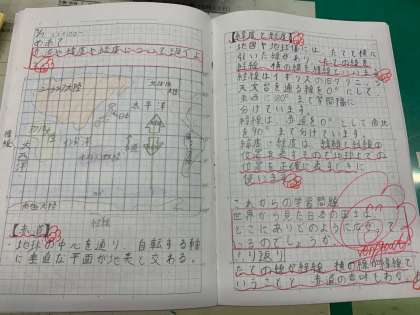 ユーラシア大陸
太平洋
インド洋
大西洋
南極大陸
【赤道】
・地球の中心を通り、自転する軸
に垂直な平面が地表と交わる。
【経度と緯度】
地図や地球儀には、たてと横に
引いた線があり、たての線を
経線、横の線を緯線といいます。
経線はイギリスの旧グリニッジ
天文台を通る線を0°にして、
東西180°まで
分けています。
緯線は、赤道を0°として南北
を90°まで分けています。
経度・緯度は
位置を表すもので地球上での
位置を正確に表すときに
使います。
これからの学習問題
世界から見た日本の国土は、
どこにありどのように
いるのでしょうか。
ふり返り
たての線が経線、横の線が緯線と
いうことと、赤道の意味もわかった。